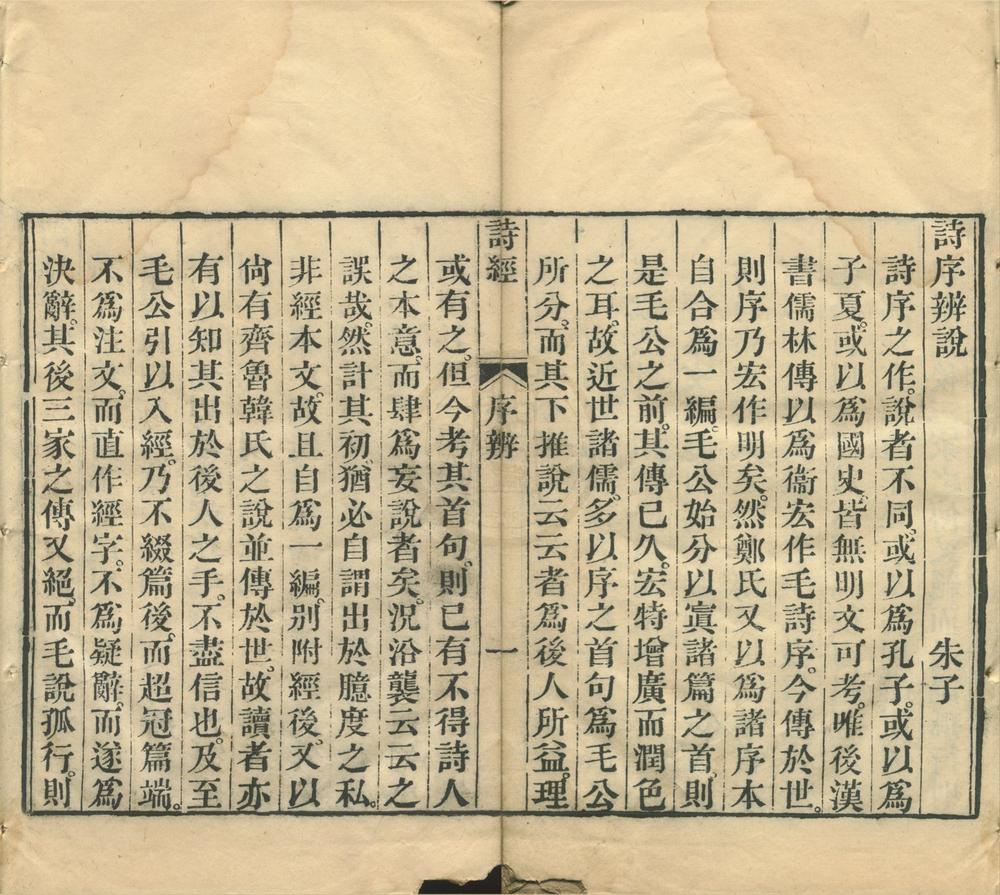 詩序辨說 朱子
詩序之作。說者不同。或以爲孔子。或以爲
子夏。或以爲國史。皆無明文可考。唯後漢
書儒林傳以爲衞宏作毛詩序。今傳於世。
則序乃宏作明矣。然鄭氏又以爲諸序本
自合爲一編。毛公始分以寘諸篇之首。則
是毛公之前。其傳已久。宏特增廣而潤色
之耳。故近世諸儒。多以序之首句爲毛公
所分。而其下推說云云者爲後人所益。理
詩經 序辨 一
或有之。但今考其首句。則已有不得詩人
之本意。而肆爲妄說者矣。況沿襲云云之
誤哉。然計其初。猶必自謂出於臆度之私。
非經本文。故且自爲一編。別附經後。又以
尙有齊魯韓氏之說並傳於世。故讀者亦
有以知其出於後人之手。不盡信也。及至
毛公引以入經。乃不綴篇後。而超冠篇端。
不爲注文。而直作經字。不爲疑辭。而遂爲
決辭。其後三家之傳又絕。而毛說孤行。則